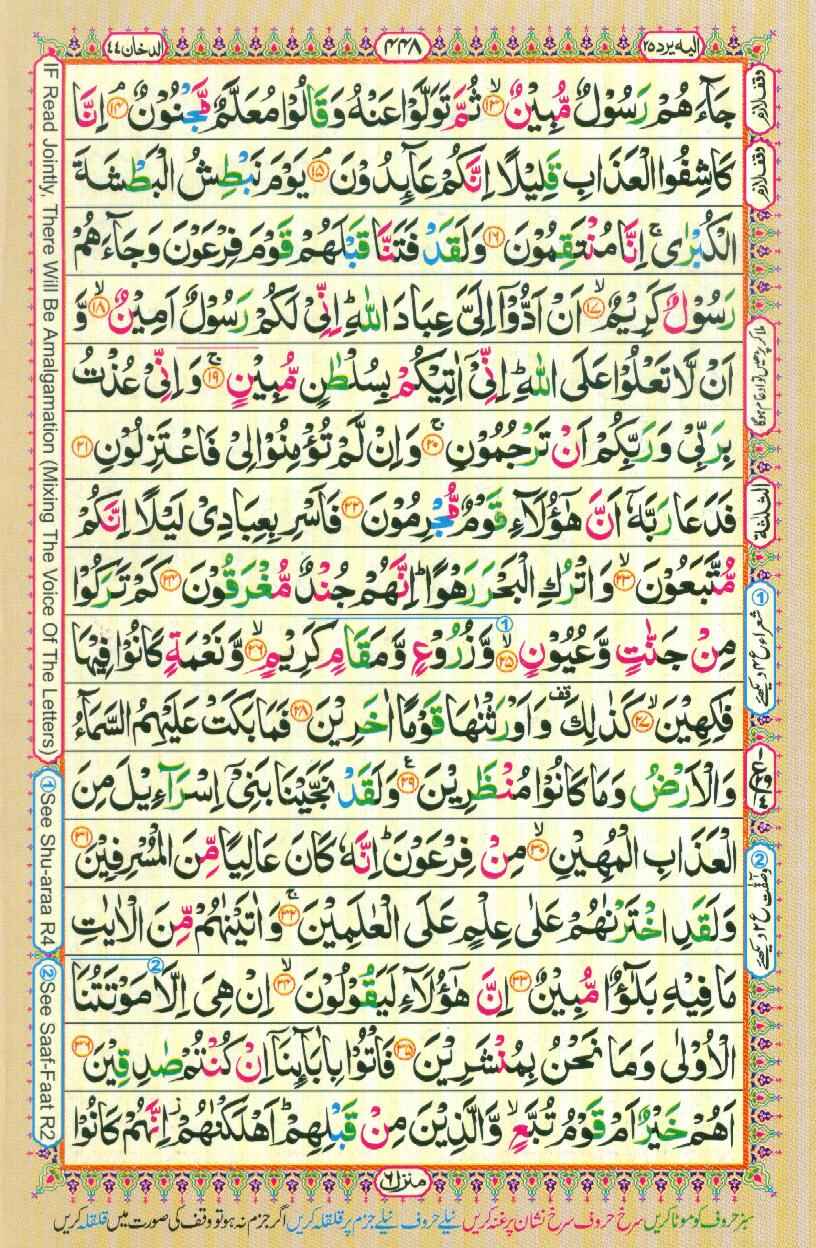 الیه یرد ۲۵
۴۴۸
الدخان ۴۴
جَآءَهُمْ رَسُوْلٌ مُّبِیْنٌ ۙ۱۳ ثُمَّ تَوَلَّوْا عَنْهُ وَقَالُوْا مُعَلَّمٌ مَّجْنُوْنٌ ۘ۱۴ اِنَّا
كَاشِفُوا الْعَذَابِ قَلِیْلًا اِنَّكُمْ عَآىِٕدُوْنَ ۘ۱۵ یَوْمَ نَبْطِشُ الْبَطْشَةَ
الْكُبْرٰی ۚ اِنَّا مُنْتَقِمُوْنَ ۱۶ وَلَقَدْ فَتَنَّا قَبْلَهُمْ قَوْمَ فِرْعَوْنَ وَجَآءَهُمْ
رَسُوْلٌ كَرِیْمٌ ۙ۱۷ اَنْ اَدُّوْۤا اِلَیَّ عِبَادَ اللّٰهِ ؕ اِنِّیْ لَكُمْ رَسُوْلٌ اَمِیْنٌ ۙ۱۸ وَّ
اَنْ لَّا تَعْلُوْا عَلَی اللّٰهِ ؕ اِنِّیْۤ اٰتِیْكُمْ بِسُلْطٰنٍ مُّبِیْنٍ ۚ۱۹ وَاِنِّیْ عُذْتُ
بِرَبِّیْ وَرَبِّكُمْ اَنْ تَرْجُمُوْنِ ۚ۲۰ وَاِنْ لَّمْ تُؤْمِنُوْا لِیْ فَاعْتَزِلُوْنِ ۲۱
فَدَعَا رَبَّهٗۤ اَنَّ هٰۤؤُلَآءِ قَوْمٌ مُّجْرِمُوْنَ ۲۲ فَاَسْرِ بِعِبَادِیْ لَیْلًا اِنَّكُمْ
مُّتَّبَعُوْنَ ۙ۲۳ وَاتْرُكِ الْبَحْرَ رَهْوًا ؕ اِنَّهُمْ جُنْدٌ مُّغْرَقُوْنَ ۲۴ كَمْ تَرَكُوْا
مِنْ جَنّٰتٍ وَّعُیُوْنٍ ۙ۲۵ وَّزُرُوْعٍ وَّمَقَامٍ كَرِیْمٍ ۙ۲۶ وَّنَعْمَةٍ كَانُوْا فِیْهَا
فٰكِهِیْنَ ۙ۲۷ كَذٰلِكَ ۫ وَاَوْرَثْنٰهَا قَوْمًا اٰخَرِیْنَ ۲۸ فَمَا بَكَتْ عَلَیْهِمُ السَّمَآءُ
وَالْاَرْضُ وَمَا كَانُوْا مُنْظَرِیْنَ ۲۹ وَلَقَدْ نَجَّیْنَا بَنِیْۤ اِسْرَآءِیْلَ مِنَ
الْعَذَابِ الْمُهِیْنِ ۙ۳۰ مِنْ فِرْعَوْنَ ؕ اِنَّهٗ كَانَ عَالِیًا مِّنَ الْمُسْرِفِیْنَ ۳۱
وَلَقَدِ اخْتَرْنٰهُمْ عَلٰی عِلْمٍ عَلَی الْعٰلَمِیْنَ ۚ۳۲ وَاٰتَیْنٰهُمْ مِّنَ الْاٰیٰتِ
مَا فِیْهِ بَلٰٓؤٌا مُّبِیْنٌ ۳۳ اِنَّ هٰۤؤُلَآءِ لَیَقُوْلُوْنَ ۙ۳۴ اِنْ هِیَ اِلَّا مَوْتَتُنَا
الْاُوْلٰی وَمَا نَحْنُ بِمُنْشَرِیْنَ ۳۵ فَاْتُوْا بِاٰبَآىِٕنَاۤ اِنْ كُنْتُمْ صٰدِقِیْنَ ۳۶
اَهُمْ خَیْرٌ اَمْ قَوْمُ تُبَّعٍ ۙ وَّالَّذِیْنَ مِنْ قَبْلِهِمْ ؕ اَهْلَكْنٰهُمْ ؗ اِنَّهُمْ كَانُوْا
منزل ۶
وقف لازم
وقف لازم
ملا کر پڑھیں تو ادغام ہوگا
الثلثة
① شعراء ع ۴ دیکھئے
② وصفت ع ۲ دیکھئے
IF Read Jointly, There Will Be Amalgamation (Mixing The Voice Of The Letters)
① See Shu-araa R4
② See Saaf-Faat R2
سبز حروف کو موٹا کریں سرخ حروف سرخ نشان پر غنہ کریں نیلے حروف نیلے جزم پر قلقلہ کریں اگر جزم نہ ہو تو وقف کی صورت میں قلقلہ کریں